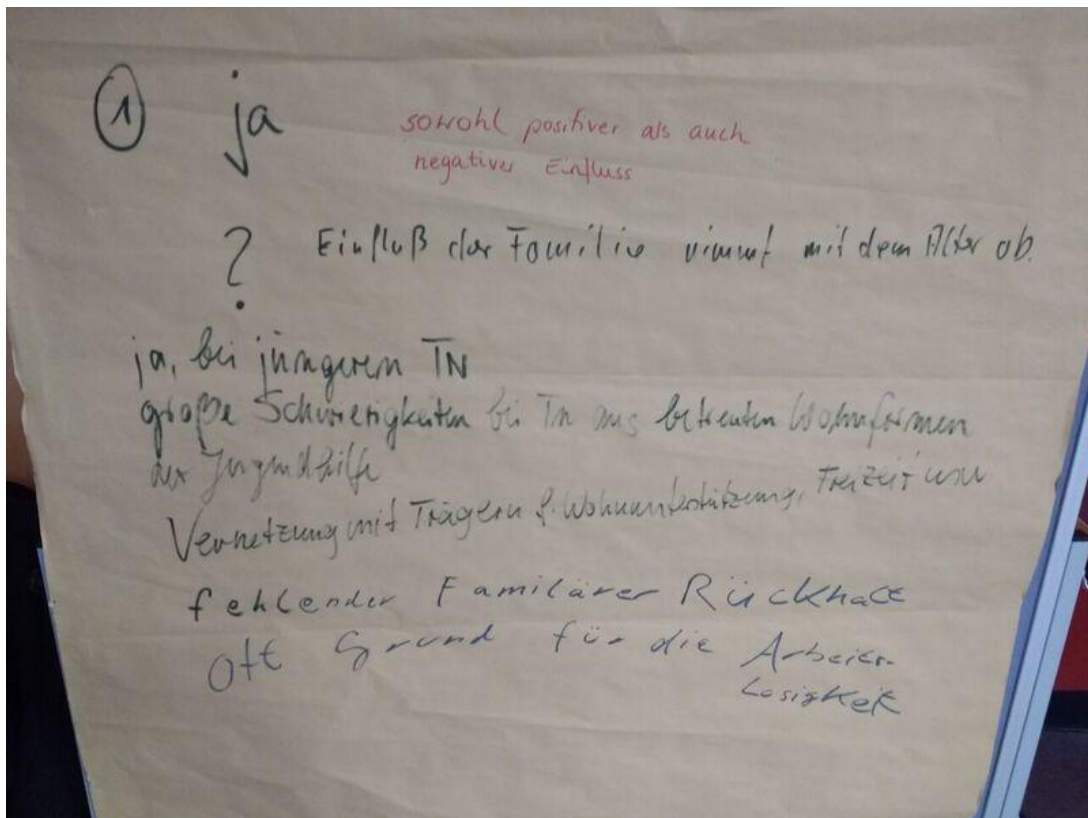 ① ja
sowohl positiver als auch
negativer Einfluss
? Einfluß der Familie nimmt mit dem Alter ab.
ja, bei jüngeren TN
große Schwierigkeiten bei TN aus betreuten Wohnformen
der Jugendhilfe
Vernetzung mit Trägern f. Wohnunterstützung, Freizeit usw
fehlender Familiärer Rückhalt
oft Grund für die Arbeits-
losigkeit